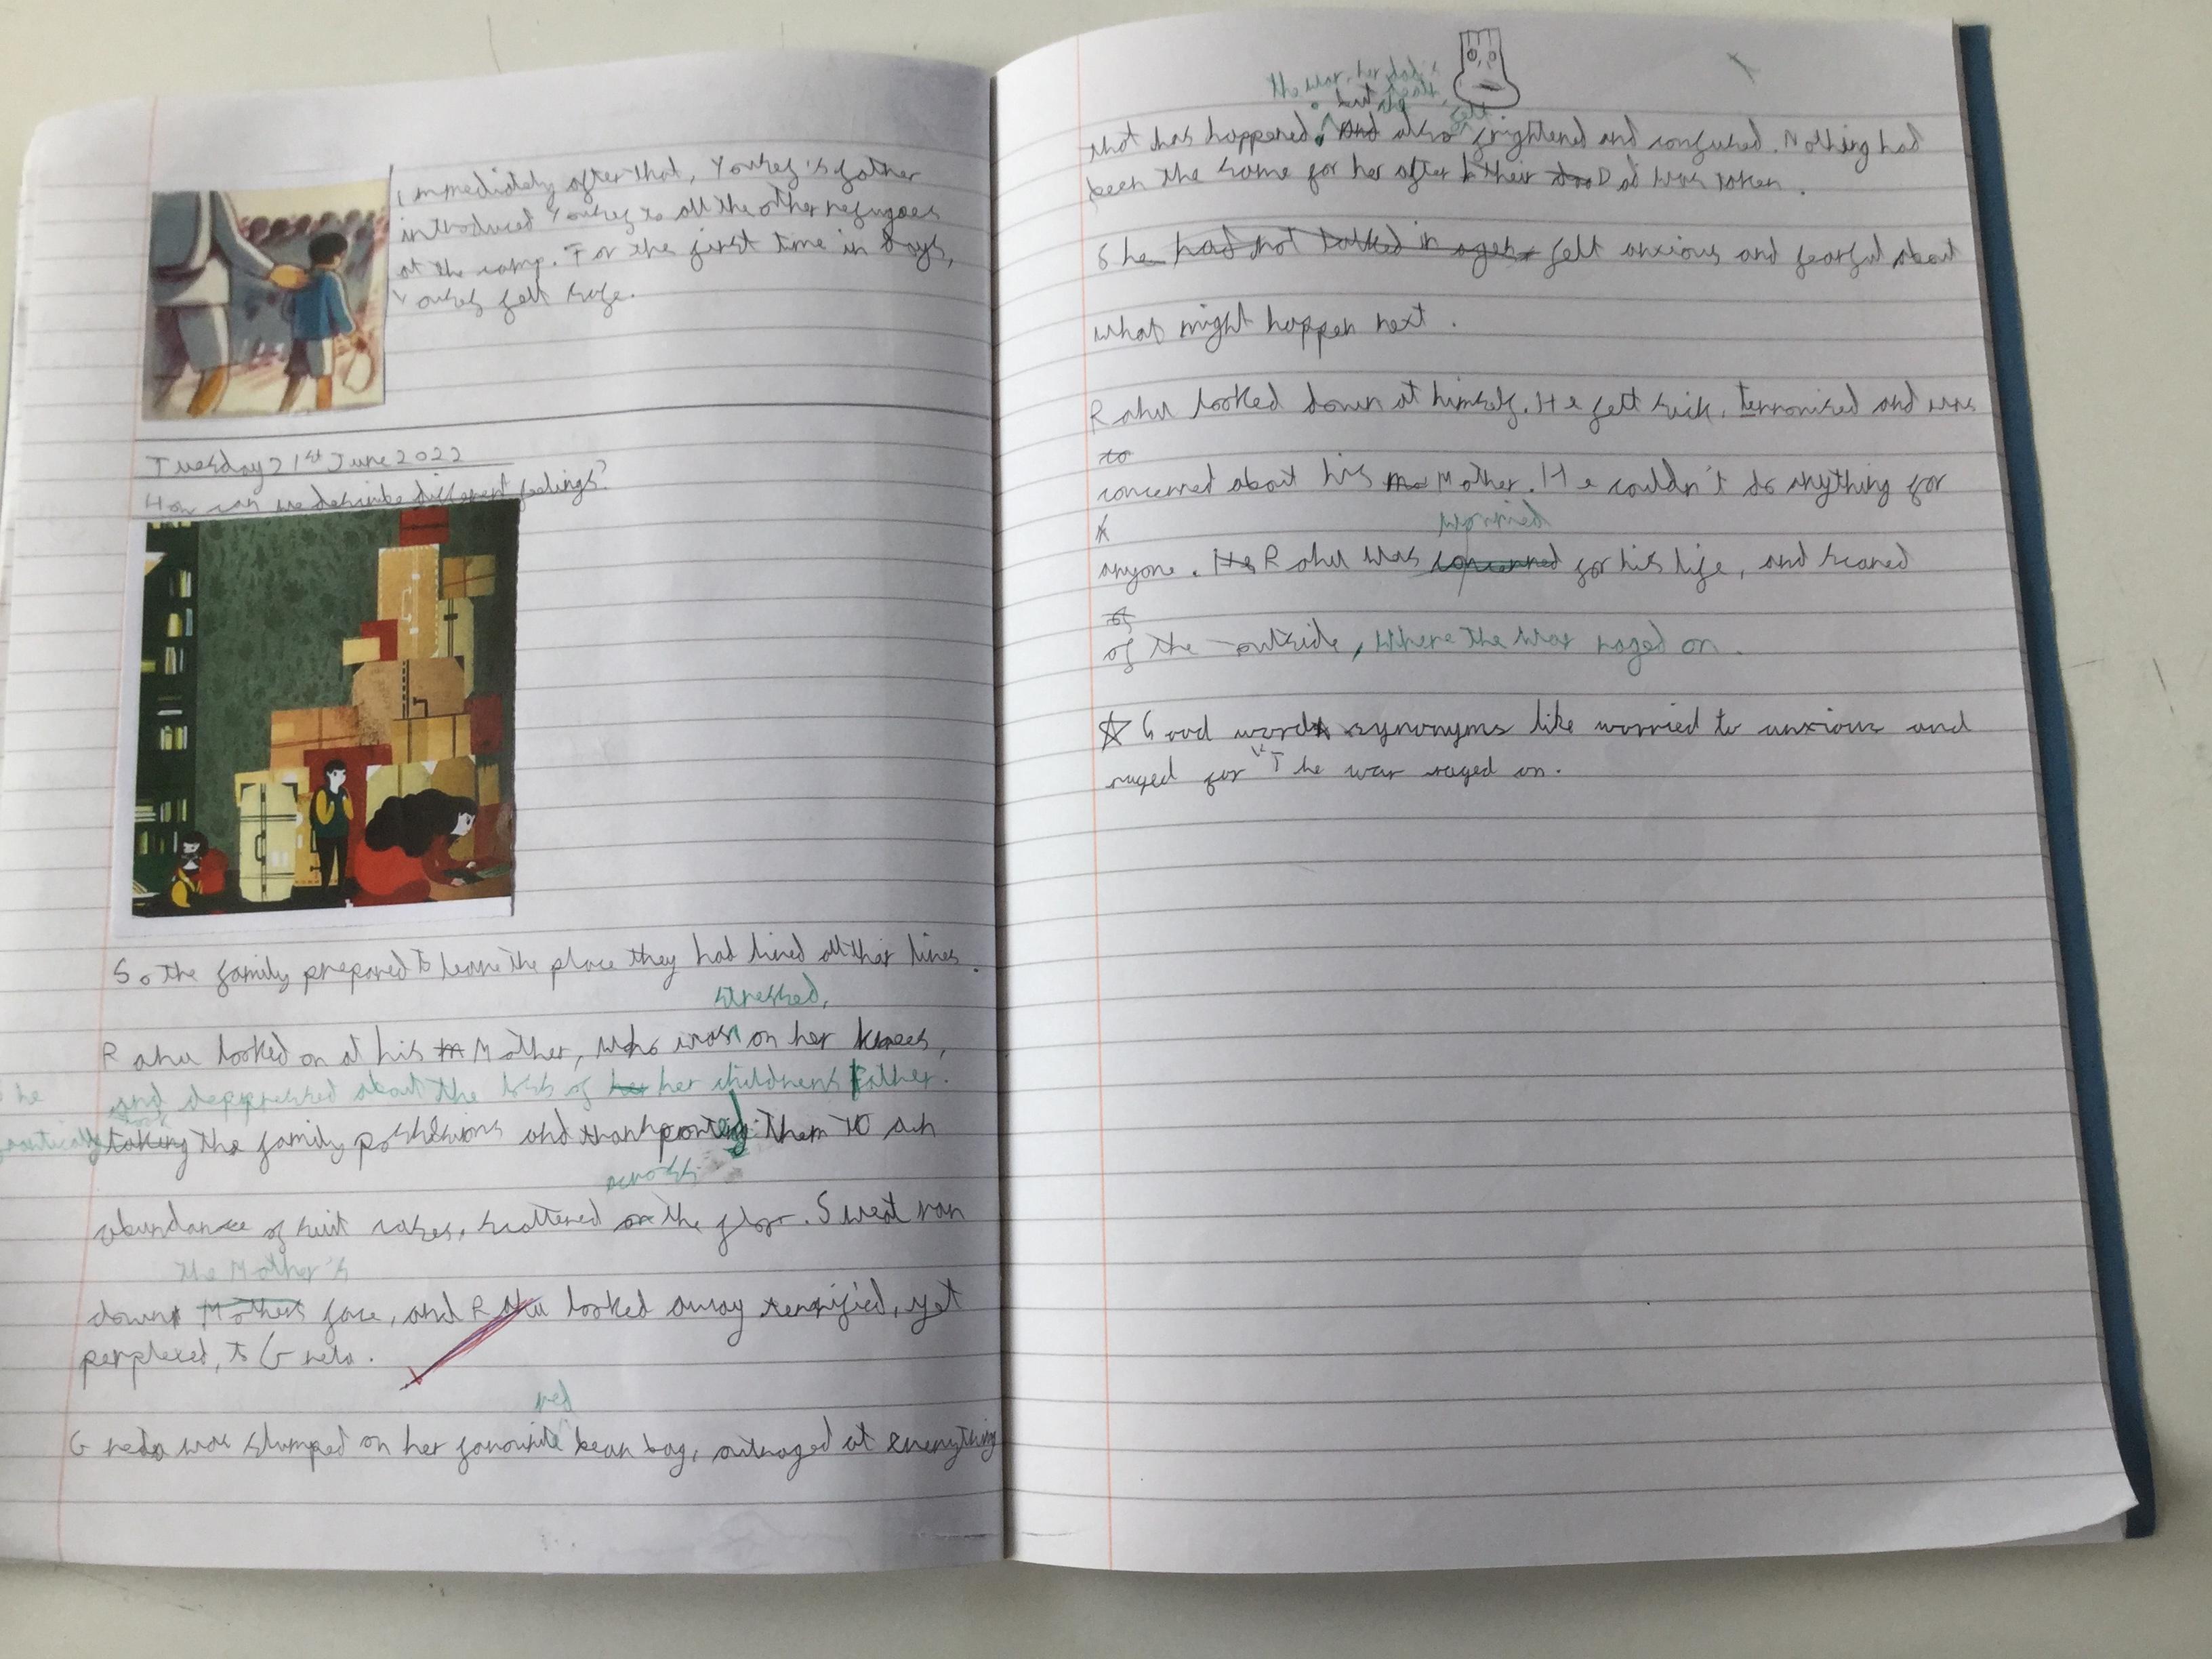 immediately after that, Yousef's father
introduced Yousef to all the other refugees
at the camp. For the first time in days,
Yousef felt safe.
Tuesday 21st June 2022
How can we describe different feelings?
So the family prepared to leave the place they had lived all their lives.
stressed,
Rahu looked on at his m Mother, who was on her knees,
and deppressed about the loss of her her childrens father.
taking the family possesions and them to an
across
abundance of suit cases, scattered on the floor. Sweat ran
the Mother's
down Mothers face, and Rahu looked away terrified, yet
perplexed, to Greta.
red
Greta was slumped on her favourite bean bag, outraged at everything
that has happened. And also felt frightened and confused. Nothing had
been the same for her after their Dad was taken.
She had not talked in ages felt anxious and fearful about
what might happen next.
Rahu looked down at himself. He felt sick, terrorised and was
to
concerned about his m Mother. He couldn't do anything for
worried
anyone. He Rahu was concerned for his life, and scared
of
of the outside, where the war raged on.
☆ Good words synonyms like worried to anxious and
raged for "The war raged on.